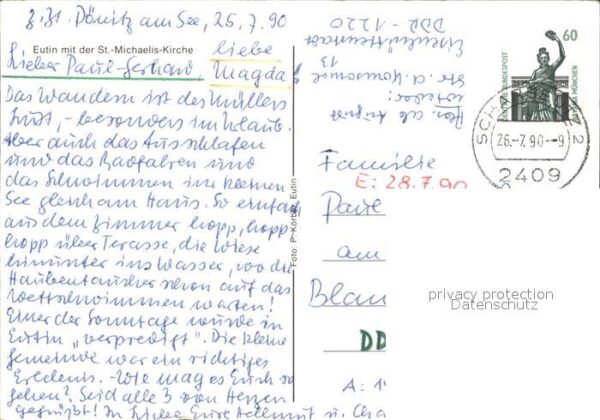 z.Zt. Dönitz am See, 25.7.90
Eutin mit der St.-Michaelis-Kirche
Lieber Paul-Gerhard, liebe
Magda!
Das Wandern ist des Müllers
Lust, - besonders im Urlaub.
Aber auch das Ausschlafen
und das Radfahren und
das Schwimmen im kleinen
See gleich am Haus. So einfach
aus dem Zimmer hopp, hopp
hopp über Terasse, die Wiese
hinunter ins Wasser, wo die
Haubentaucher schon auf das
Wettschwimmen warten!
Einer der Sonntage wurde in
Eutin "verpredigt". Die kleine
Gemeinde war ein richtiges
Erlebnis. - Wie mag es Euch so
gehen? Seid alle 3 von Herzen
gegrüßt! In Liebe Eure Hellmut u. Cha
Foto: P. Korbs, Eutin
DDR-1220
Eisenhüttenstadt
13
wieder:
ab August
60
DEUTSCHE BUNDESPOST
MÜNCHEN
26.-7.90--9
2409
2
Familie
E: 28.7.90
Paul
am
Blan
DD
A: 1
privacy protection
Datenschutz